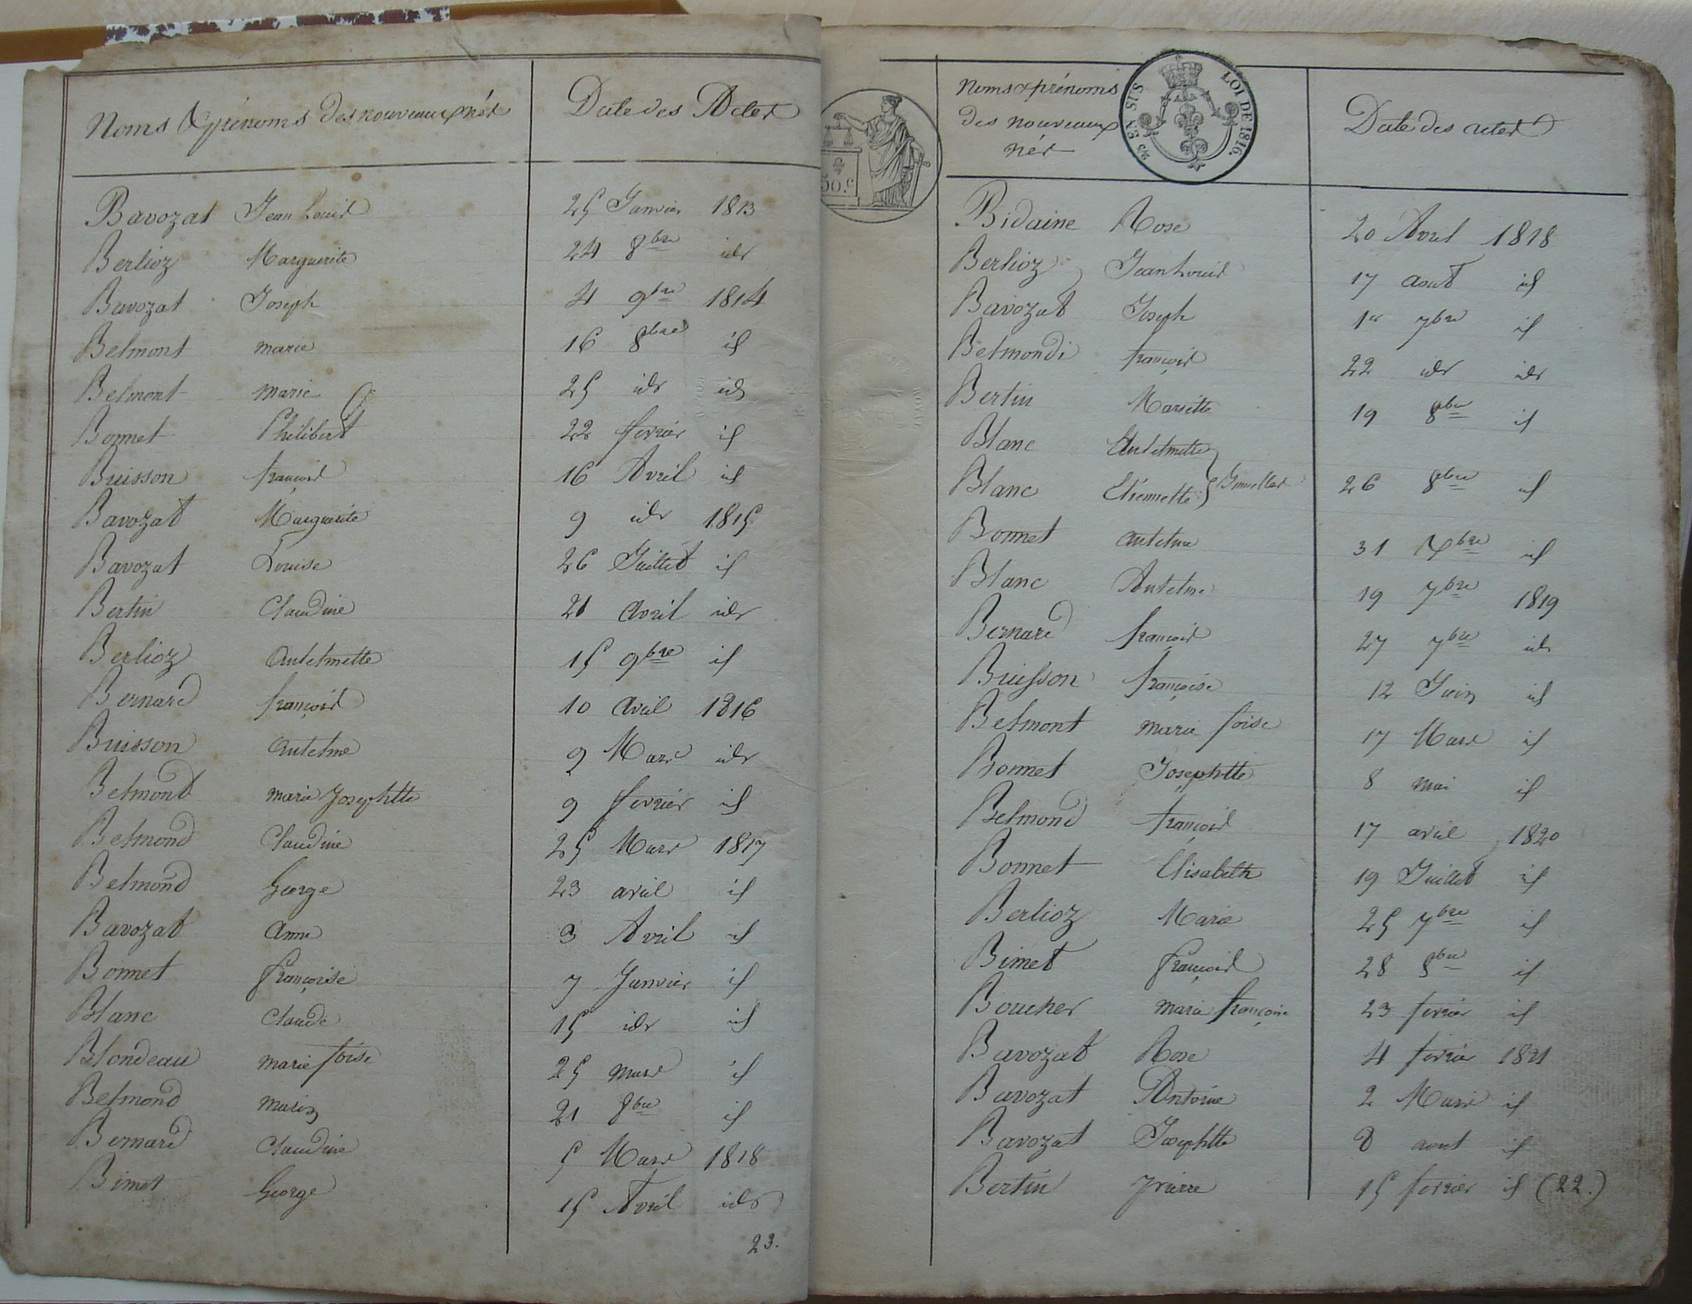 Noms & prénoms des nouveaux nés Date des Actes
Bavozat Jean Louis 25 Janvier 1813
Berlioz Marguerite 24 8bre idr
Bavozat Joseph 4 9bre 1814
Belmont marie 16 8bre id
Belmont marie 25 idr idr
Bonnet Philibert 22 fevrier id
Buisson françois 16 Avril id
Bavozat Marguerite 9 idr 1815
Bavozat Louise 26 Juillet id
Bertin Claudine 21 avril idr
Berlioz antelmette 15 9bre id
Bernard françois 10 avril 1816
Buisson antelme 9 Mars idr
Belmond marie Josephtte 9 fevrier id
Belmond Claudine 25 Mars 1817
Belmond George 23 avril id
Bavozat anne 3 Avril id
Bonnet françoise 7 Janvier id
Blanc Claude 15 idr id
Blondeau marie foise 25 mars id
Belmond 21 8bre id
Bernard Claudine 5 Mars 1818
Bimet George 15 Avril idr
23.
50.c
Noms & prénoms
des nouveaux
nés
LOI DE 1816.
Date des actes
Bidaine Rose 20 Avril 1818
Berlioz Jean Louis 17 aout id
Bavozat Joseph 1er 7bre id
Belmondi françois 22 idr idr
Bertin Mariette 19 8bre id
Blanc Antelmette
Blanc Etiennette Jumelles 26 8bre id
Bonnet antelme 31 Xbre id
Blanc Antelme 19 7bre 1819
Bernard françois 27 7bre idr
Buisson françoise 12 Juin id
Belmont marie foise 17 Mars id
Bonnet Josephtte 8 mai id
Belmond françois 17 avril 1820
Bonnet Elisabeth 19 Juillet id
Berlioz Marie 25 7bre id
Bimet françois 28 8bre id
Boucher marie françoise 23 fevrier id
Bavozat Rose 4 fevrier 1821
Bavozat Antoine 2 Mars id
Bavozat Josephtte 8 aout id
Bertin pierre 15 fevrier id (22.)